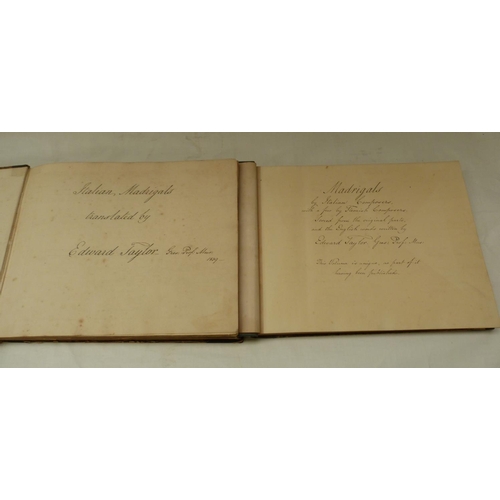 Italian Madrigals
translated by
Edward Taylor. Gres. Prof. Mus.
Madrigals
by Italian Composers
with a few by French Composers
Scored from the original parts
and the English words written by
Edward Taylor Gres. Prof. Mus
This Volume is unique, no part of it
having been published.